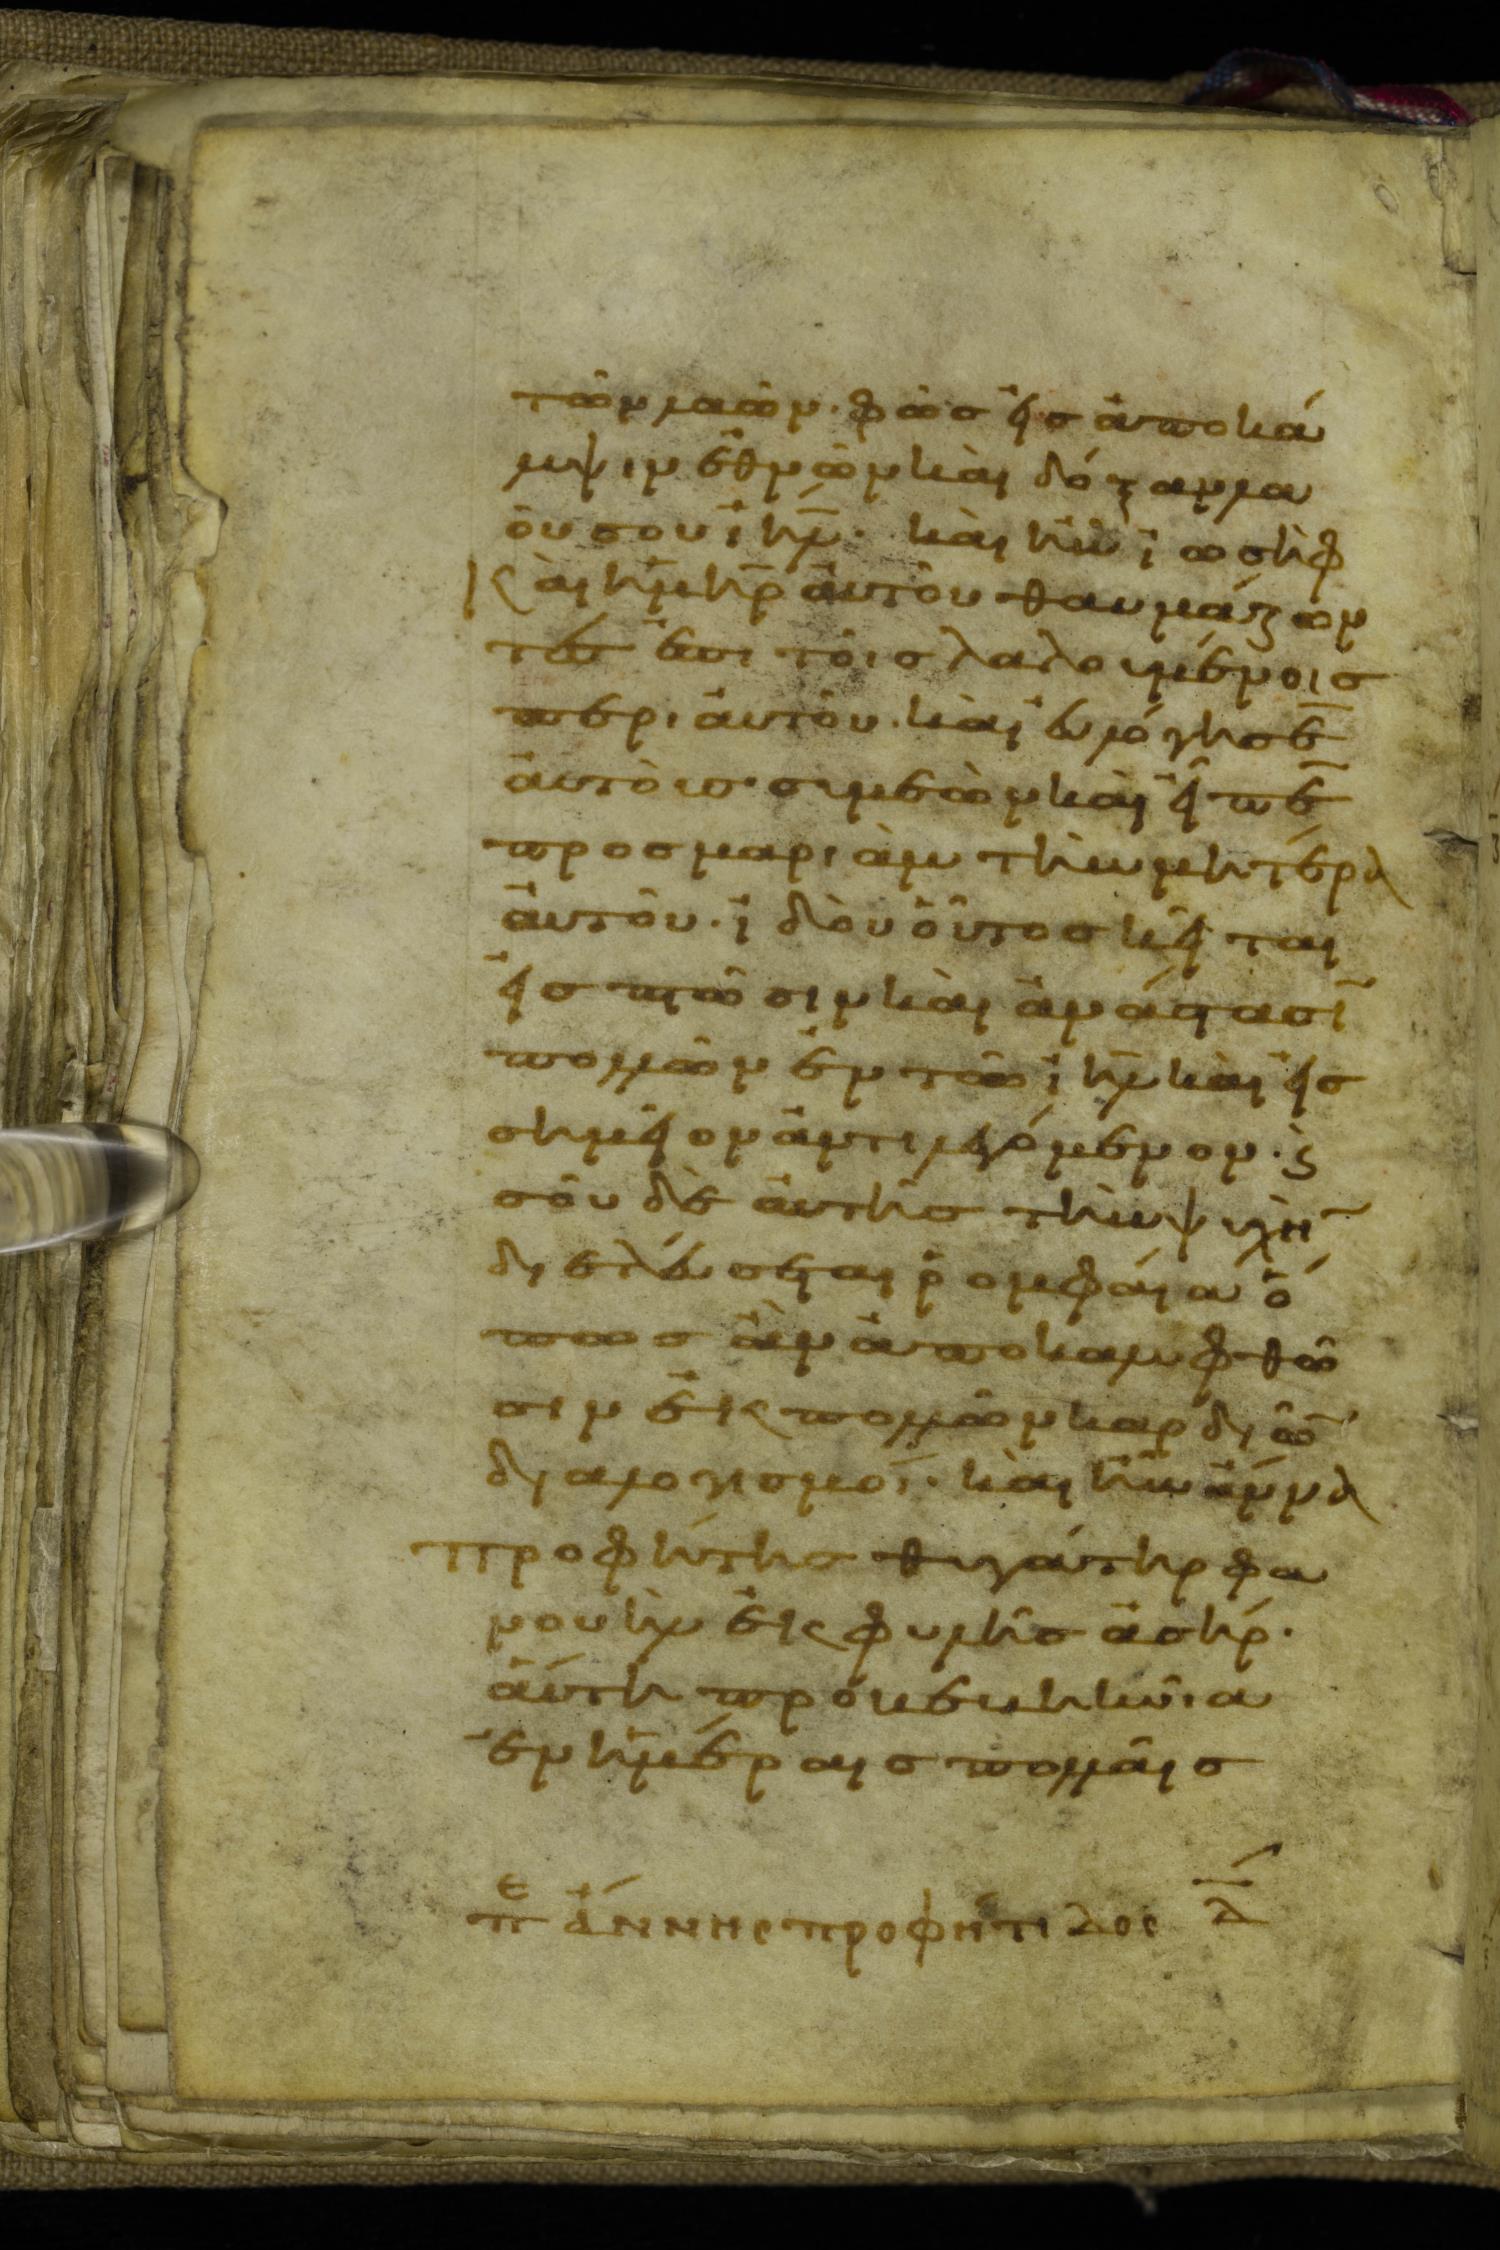 τῶν λαῶν· φῶσ εἰσ ἀποκά
λυψιν ἐθνῶν καὶ δόξαν λα
οῦ σου ἰηλ· καὶ ἦν ἰωσὴφ
καὶ ἡ μηρ αὐτοῦ θαυμάζον
τεσ ἐπὶ τοῖσ λαλουμένοισ
περὶ αὐτοῦ· καὶ εὐλόγησε
αὐτοὺσ συμεὼν καὶ εἶπε
προσ μαριὰμ τὴν μητέρα
αὐτοῦ· ἰδοὺ οὗτοσ κεῖται
εἰσ πτῶσιν καὶ ἀνάστασι
πολλῶν ἐν τῶ ἰηλ καὶ εἰσ
σημεῖον ἀντιλεγόμενον· ϗ
σοῦ δὲ αὐτῆσ τὴν ψυχὴ
διελεύσεται ῥομφαία ὅ
πωσ ἂν ἀποκαλυφθῶ
σιν ἐκ πολλῶν καρδιῶ
διαλογισμοί· καὶ ἦν ἄννα
προφῆτισ θυγάτηρ φα
νουὴλ ἐκ φυλῆσ ἀσήρ·
αὕτη προβεβηκυῖα
ἐν ἡμέραισ πολλαῖσ
πε ἄννησ προφήτιδοσ δ